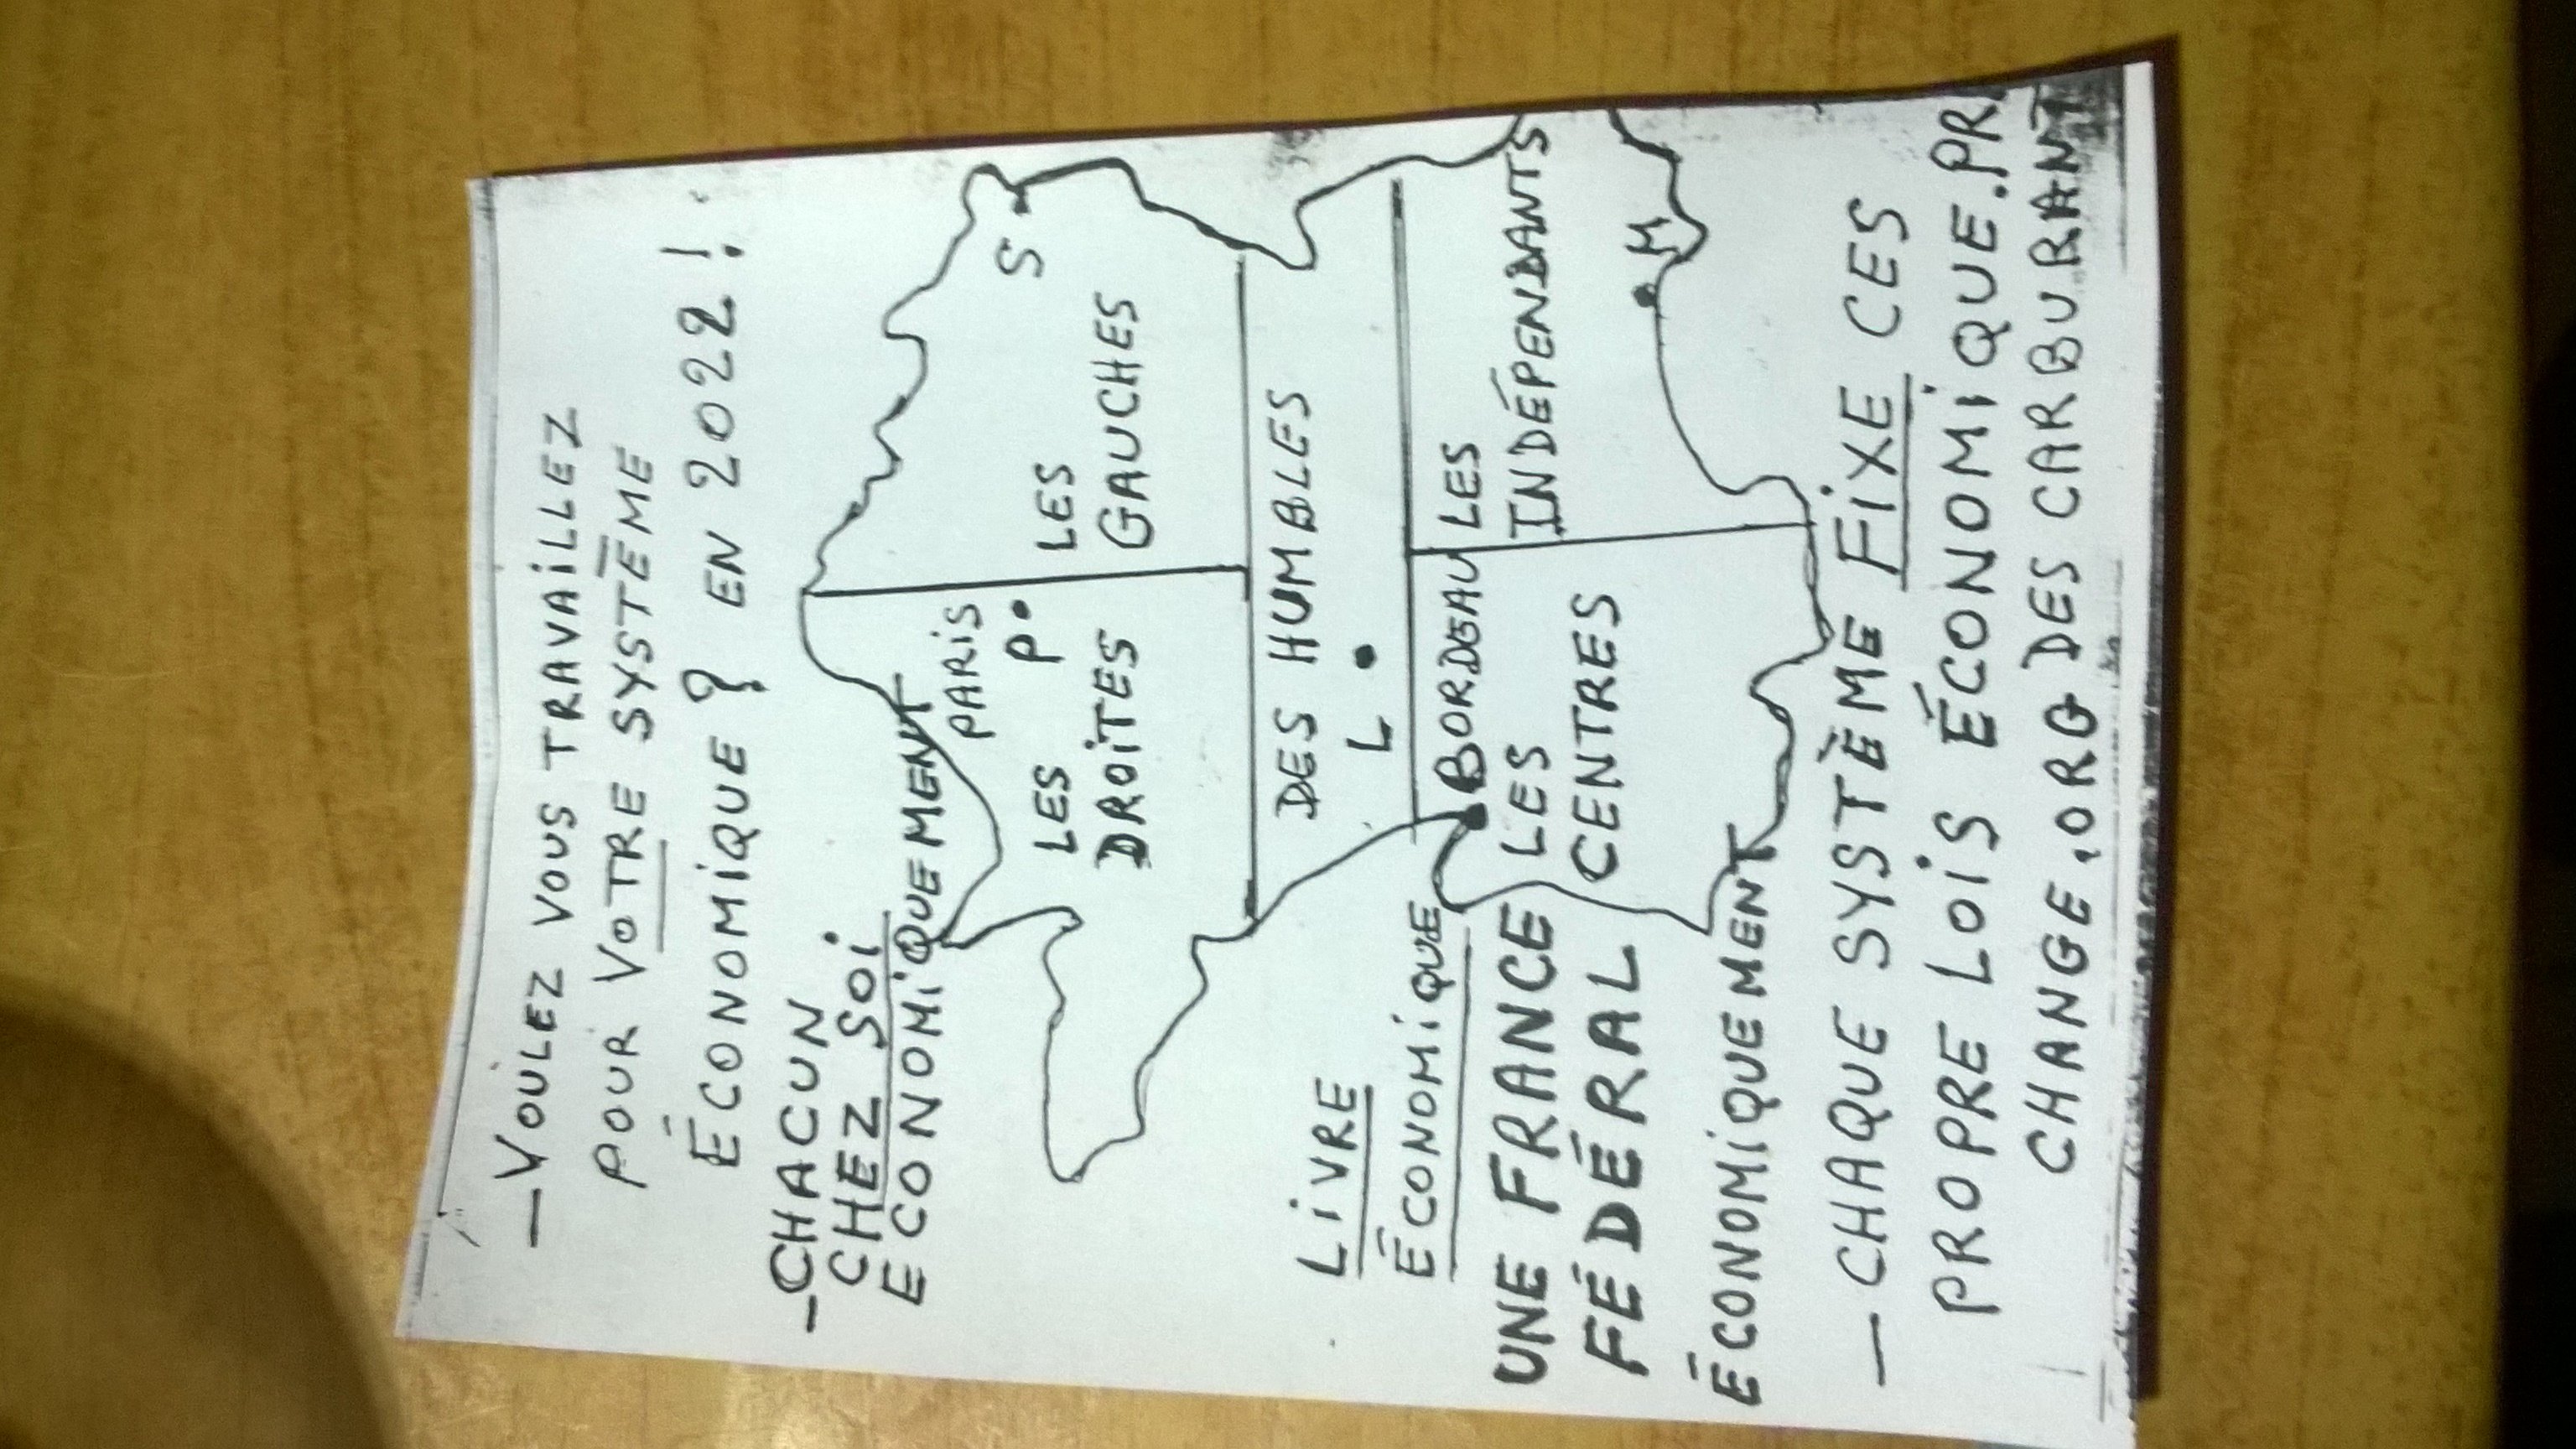 — VOULEZ VOUS TRAVAILLEZ
POUR VOTRE SYSTÈME
ÉCONOMIQUE ? EN 2022 !
— CHACUN
CHEZ SOI
ECONOMIQUEMENT
PARIS
P.
S
LES
DROITES
LES
GAUCHES
DES HUMBLES
L
LIVRE
ÉCONOMIQUE
BORDEAU
LES
INDÉPENDANTS
UNE FRANCE
FÉDÉRAL
ÉCONOMIQUEMENT
LES
CENTRES
M
— CHAQUE SYSTÈME FIXE CES
PROPRE LOIS ÉCONOMIQUE. PR
CHANGE.ORG DES CARBURANT